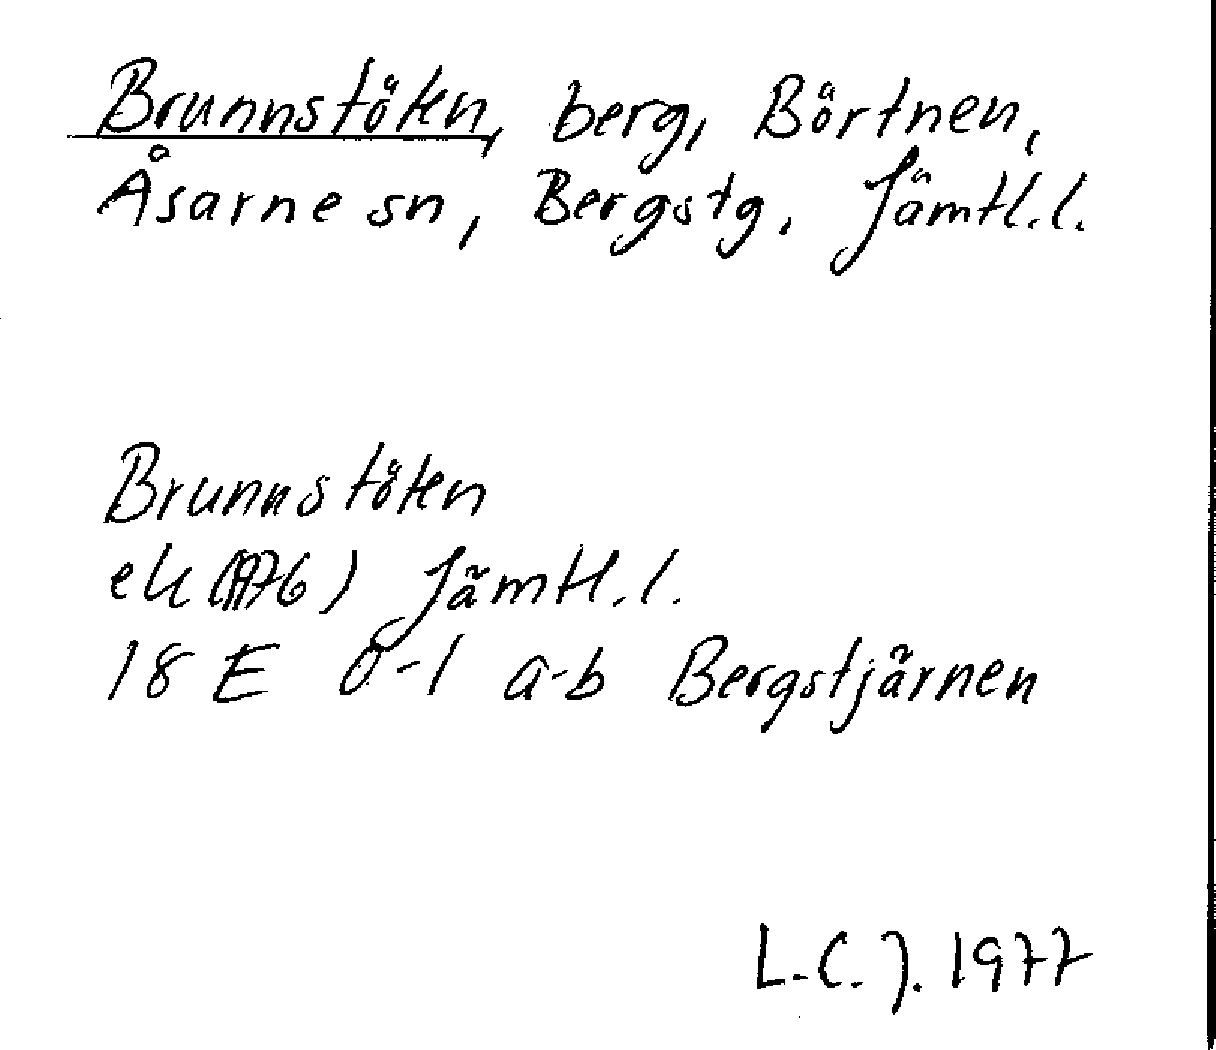 Brunnstöten, berg, Börtnen,
Åsarne sn, Bergstg, Jämtl.l.
Brunnstöten
ek (1976) Jämtl.l.
18 E 0-1 a-b Bergstjärnen
L.C.J. 1977